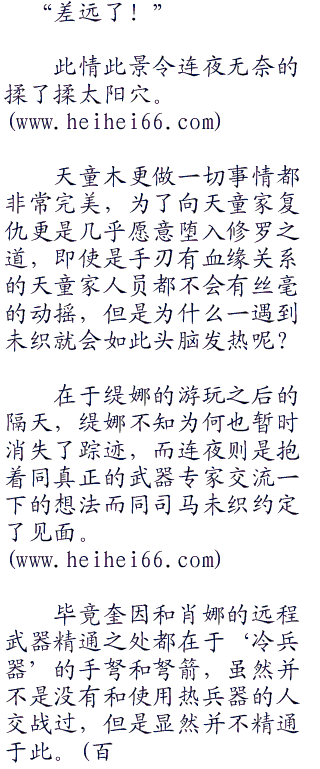 “差远了！”
此情此景令连夜无奈的
揉了揉太阳穴。
(www.heihei66.com)
天童木更做一切事情都
非常完美，为了向天童家复
仇更是几乎愿意堕入修罗之
道，即使是手刃有血缘关系
的天童家人员都不会有丝毫
的动摇，但是为什么一遇到
未织就会如此头脑发热呢？
在于缇娜的游玩之后的
隔天，缇娜不知为何也暂时
消失了踪迹，而连夜则是抱
着同真正的武器专家交流一
下的想法而同司马未织约定
了见面。
(www.heihei66.com)
毕竟奎因和肖娜的远程
武器精通之处都在于‘冷兵
器’的手弩和弩箭，虽然并
不是没有和使用热兵器的人
交战过，但是显然并不精通
于此。(百